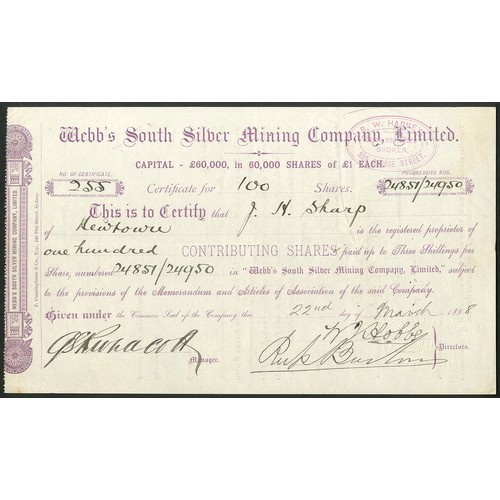 Webb's South Silver Mining Company, Limited.
CAPITAL - £60,000, in 60,000 SHARES of £1 EACH.
NO. OF CERTIFICATE. PROGRESSIVE NOS.
255 Certificate for 100 Shares. 24851/24950
This is to Certify that J. H. Sharp
of Newtown is the registered proprietor of
one hundred CONTRIBUTING SHARES paid up to Three Shillings per
Share, numbered 24851/24950 in "Webb's South Silver Mining Company, Limited," subject
to the provisions of the Memorandum and Articles of Association of the said Company.
Given under the Common Seal of the Company this 22nd day of March 1888
Manager.
Directors.
W. HARVE
BROKER
STREET.
WEBB'S SOUTH SILVER MINING COMPANY, LIMITED